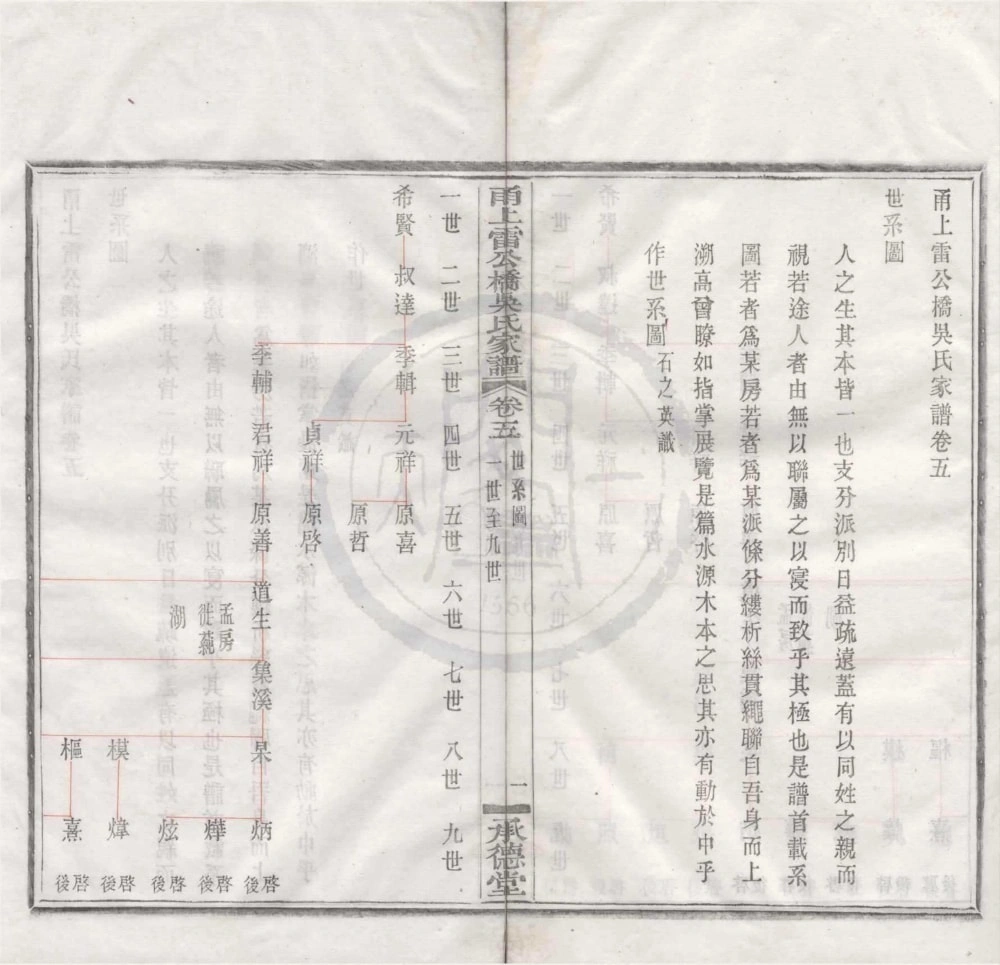 甬上雷公橋吳氏家譜卷五
世系圖
人之生其本皆一也支分派別日益疏遠蓋有以同姓之親而
視若途人者由無以聯屬之以寖而致乎其極也是譜首載系
圖若者爲某房若者爲某派條分縷析絲貫繩聯自吾身而上
溯高曾瞭如指掌展覽是篇水源木本之思其亦有動於中乎
作世系圖 石之英識
甬上雷公橋吳氏家譜 卷五 世系圖 一世至九世 一 承德堂
一世 二世 三世 四世 五世 六世 七世 八世 九世
希賢 叔達 季輯 元祥 原喜
原哲
貞祥 原啓
季輔 君祥 原善 道生 集溪 杲 炳 啓後
孟房
徙蕪
湖
燁 啓後
炫 啓後
模 煒 啓後
樞 熹 啓後